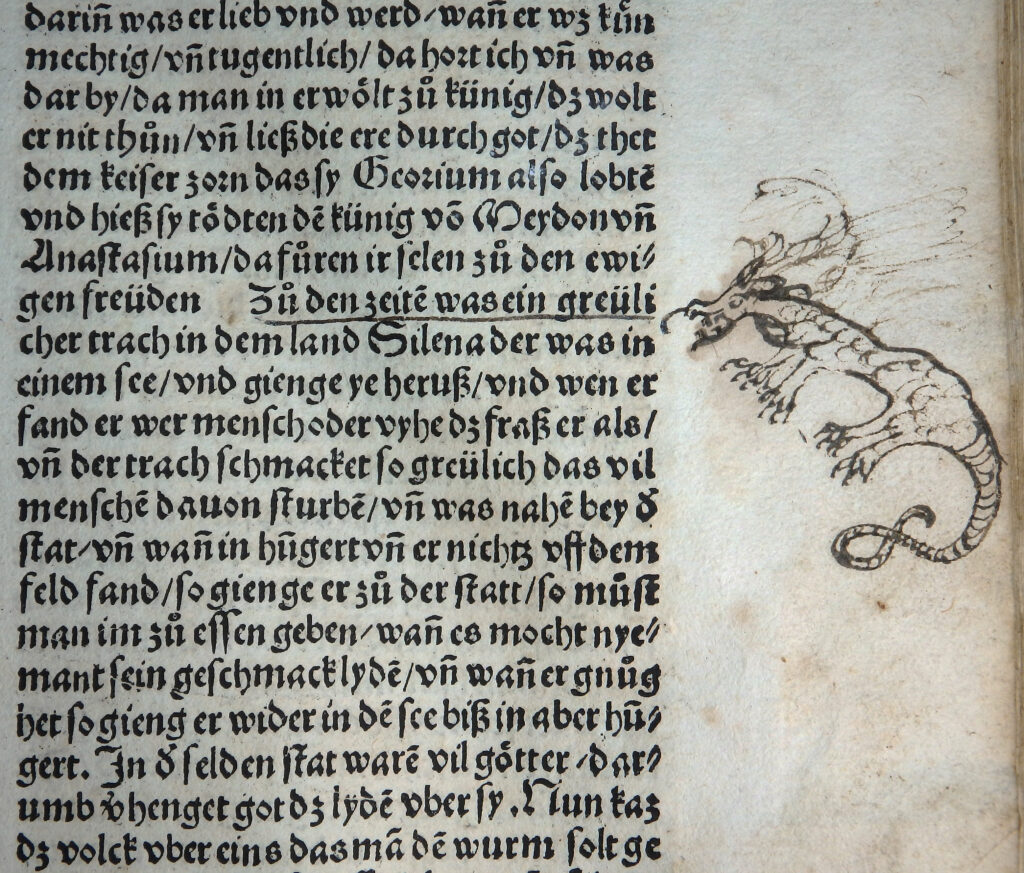 darin̄ was er lieb vnd werd/wan̄ er wz kün
mechtig/vn̄ tugentlich/da hort ich vn̄ was
dar by/da man in erwoͤlt zuͦ künig/dz wolt
er nit thuͦn/vn̄ ließ die ere durch got/dz thet
dem keiser zorn das sy Georium also lobtē
vnd hieß sy toͤdten dē künig vō Meydon vn̄
Anastasium/da fuͦren ir selen zuͦ den ewi⸗
gen freüden Zuͦ den zeitē was ein greüli
cher trach in dem land Silena der was in
einem see/vnd gienge ye heruß/vnd wen er
fand er wer mensch oder vyhe dz fraß er als/
vn̄ der trach schmacket so greülich das vil
menschē dauon sturbē/vn̄ was nahē bey d̓
stat/vn̄ wan̄ in hūgert vn̄ er nichtz vff dem
feld fand/so gienge er zuͦ der statt/so muͦst
man im zuͦ essen geben/wan̄ es mocht nye⸗
mant sein geschmack lydē/vn̄ wan̄ er gnuͦg
het so gieng er wider in dē see biß in aber hū⸗
gert. In d̓ selden stat warē vil goͤtter/dar⸗
umb v̓henget got dz lydē vber sy. Nun kaz
dz volck vber eins das mā dē wurm solt ge